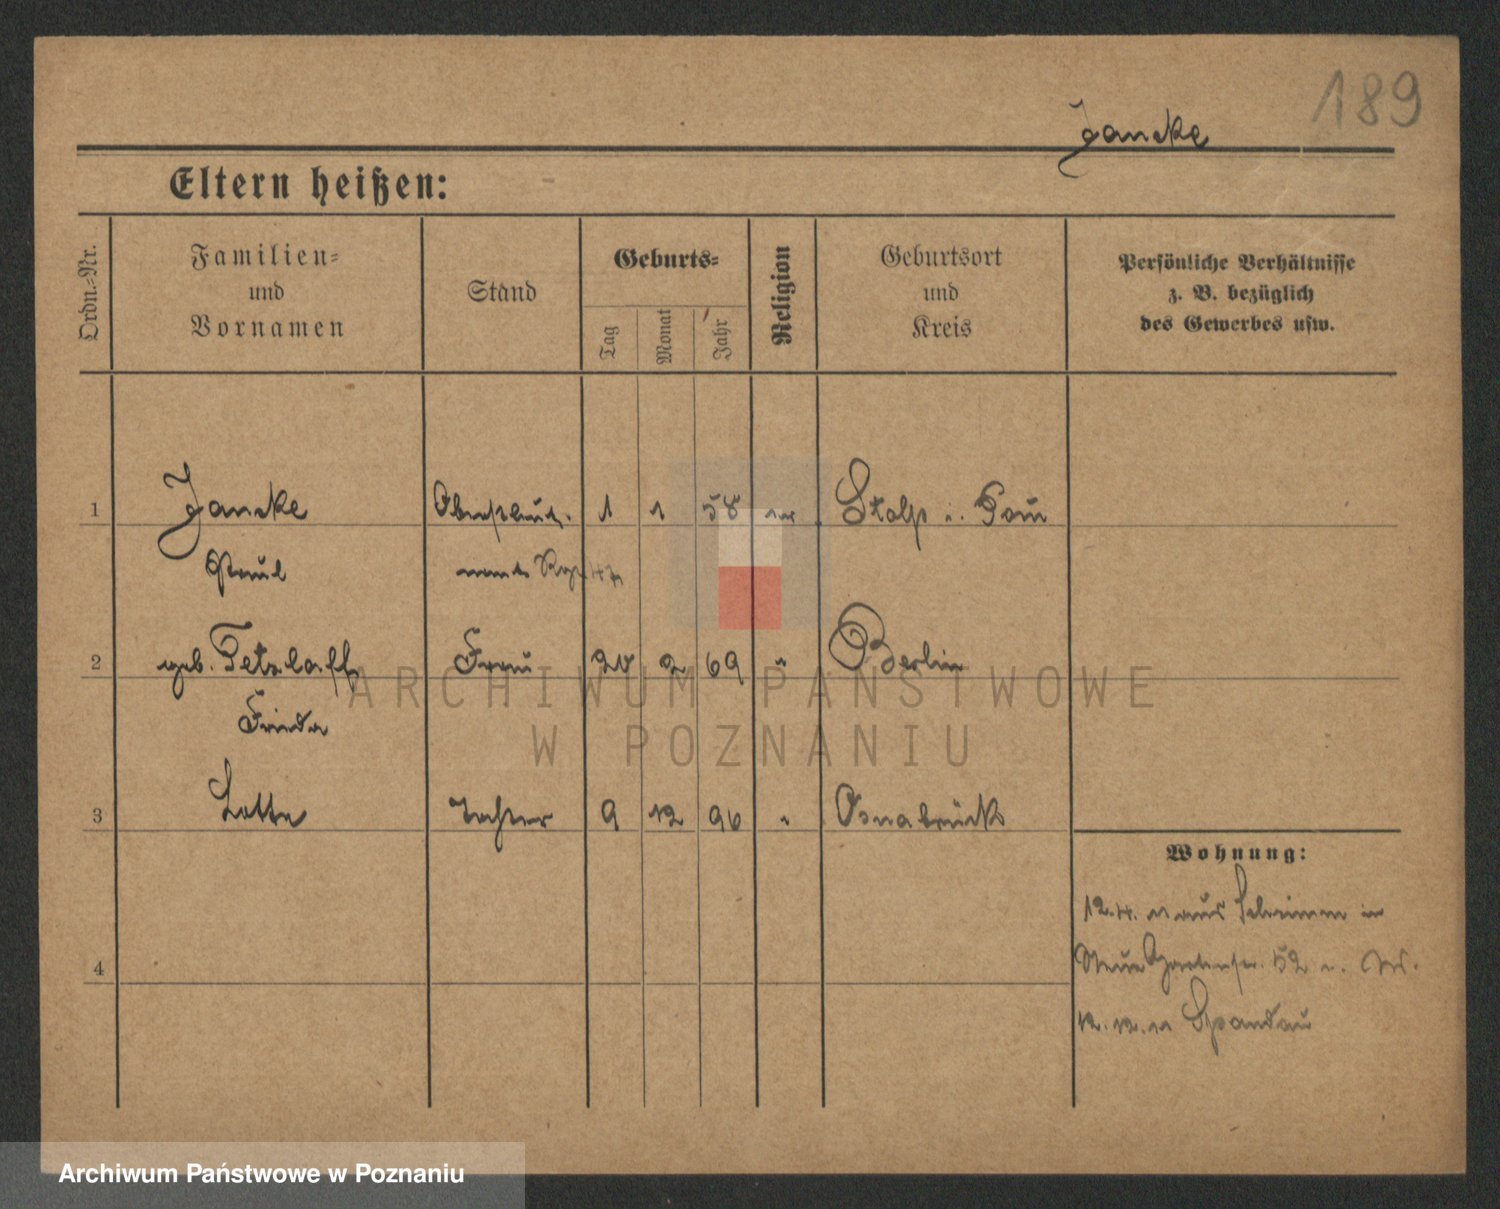 189
Jancke
Eltern heißen:
Ordn.-Nr.
Familien-
und
Vornamen
Stand
Geburts-
Tag
Monat
Jahr
Religion
Geburtsort
und
Kreis
Persönliche Verhältnisse
z. B. bezüglich
des Gewerbes usw.
1 Jancke 1 1 58 Stolp i. Pom
Paul
2 geb. Tetzlaff Frau 20 2 69 " Berlin
Frieda
3 Lotte Tochter 9 12 96 " Osnabrück
Wohnung:
12.4. 11 aus Schrimm in
Neue Gartenstr. 52
12.12.11 Spandau
4
ARCHIWUM PAŃSTWOWE
W POZNANIU
Archiwum Państwowe w Poznaniu